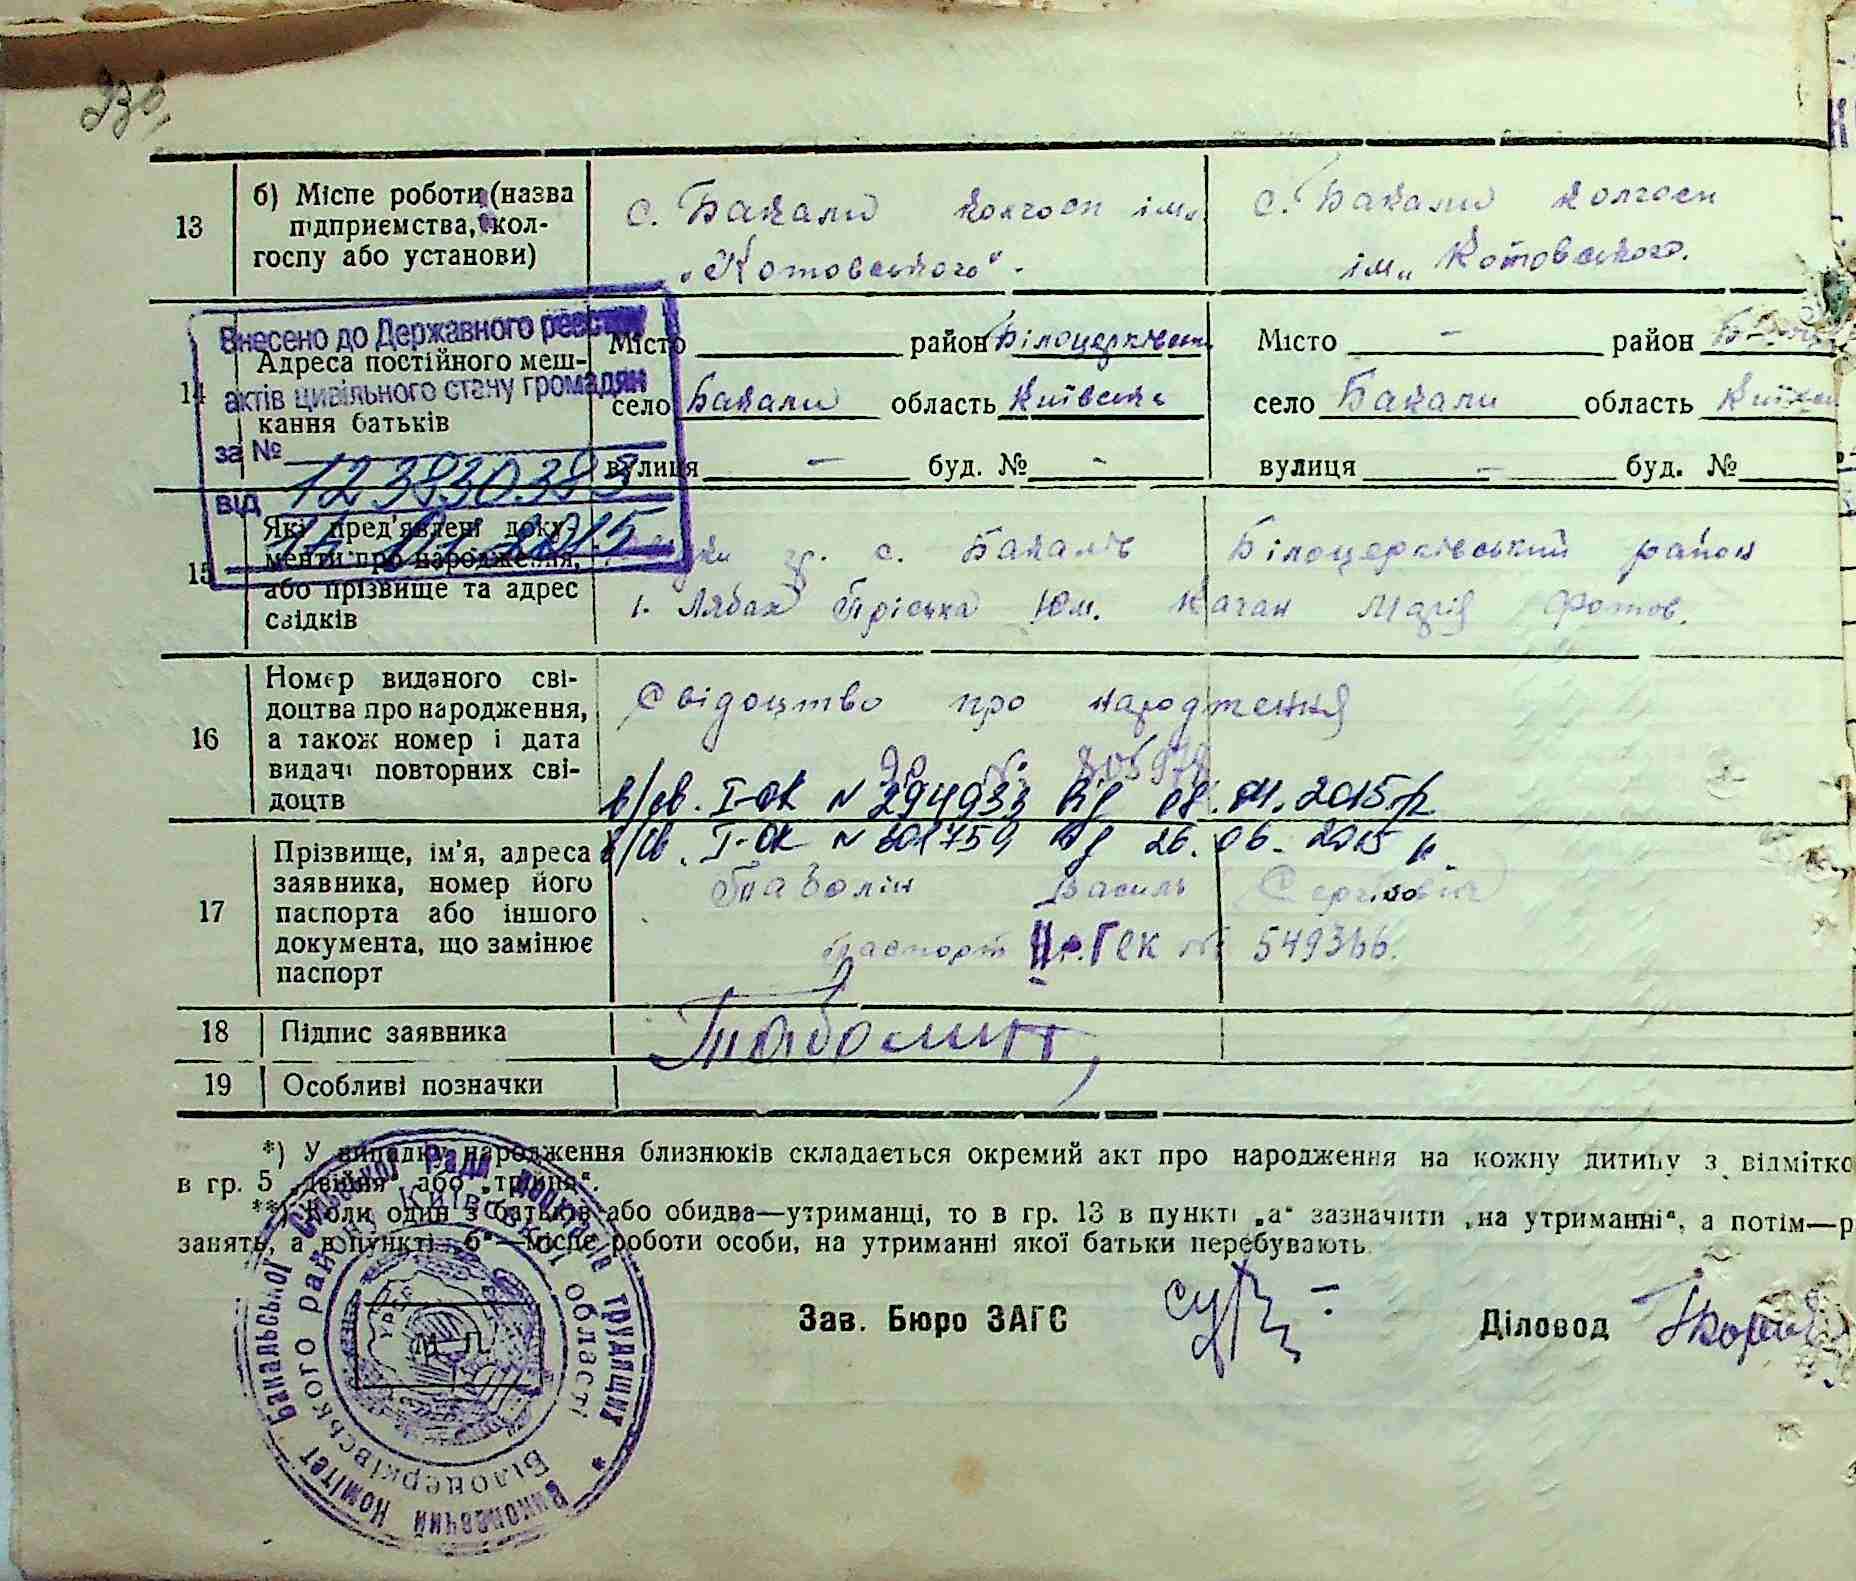 13
б) Місце роботи (назва підприємства, колгоспу або установи)
с. Бакали колгосп ім. „Котовського".
с. Бакали колгосп ім. „Котовського.
14
Адреса постійного мешкання батьків
Місто район Білоцерківськ
село Бакали область Київська
вулиця - буд. № -
Місто - район
село Бакали область
вулиця - буд. №
Внесено до Державного реєстру
актів цивільного стану громадян
за №
від 2015
15
Які пред'явлені документи про народження, або прізвище та адрес свідків
с. Бакалів Білоцерківський район
Марія
16
Номер виданого свідоцтва про народження, а також номер і дата видачі повторних свідоцтв
Свідоцтво про народження
п/св. І-ОК № 294933 від 08. 2015 р
п/св. І-ОК № від 26. 06. 2015 р.
17
Прізвище, ім'я, адреса заявника, номер його паспорта або іншого документа, що замінює паспорт
Таболін Василь Сергійович
паспорт № 549366.
18 Підпис заявника
Таболин
19 Особливі позначки
*) У випадку народження близнюків складається окремий акт про народження на кожну дитину з відмітко
в гр. 5 „двійня" або „трійня".
**) Коли один з батьків або обидва—утриманці, то в гр. 13 в пункті „а" зазначити „на утриманні", а потім—р
занять, а в пункті „б"—місце роботи особи, на утриманні якої батьки перебувають.
Зав. Бюро ЗАГС
Діловод
Виконавчий Комітет Бакальської Сільської Ради депутатів трудящих *
Білоцерківського району Київської області
УРСР
М. П.